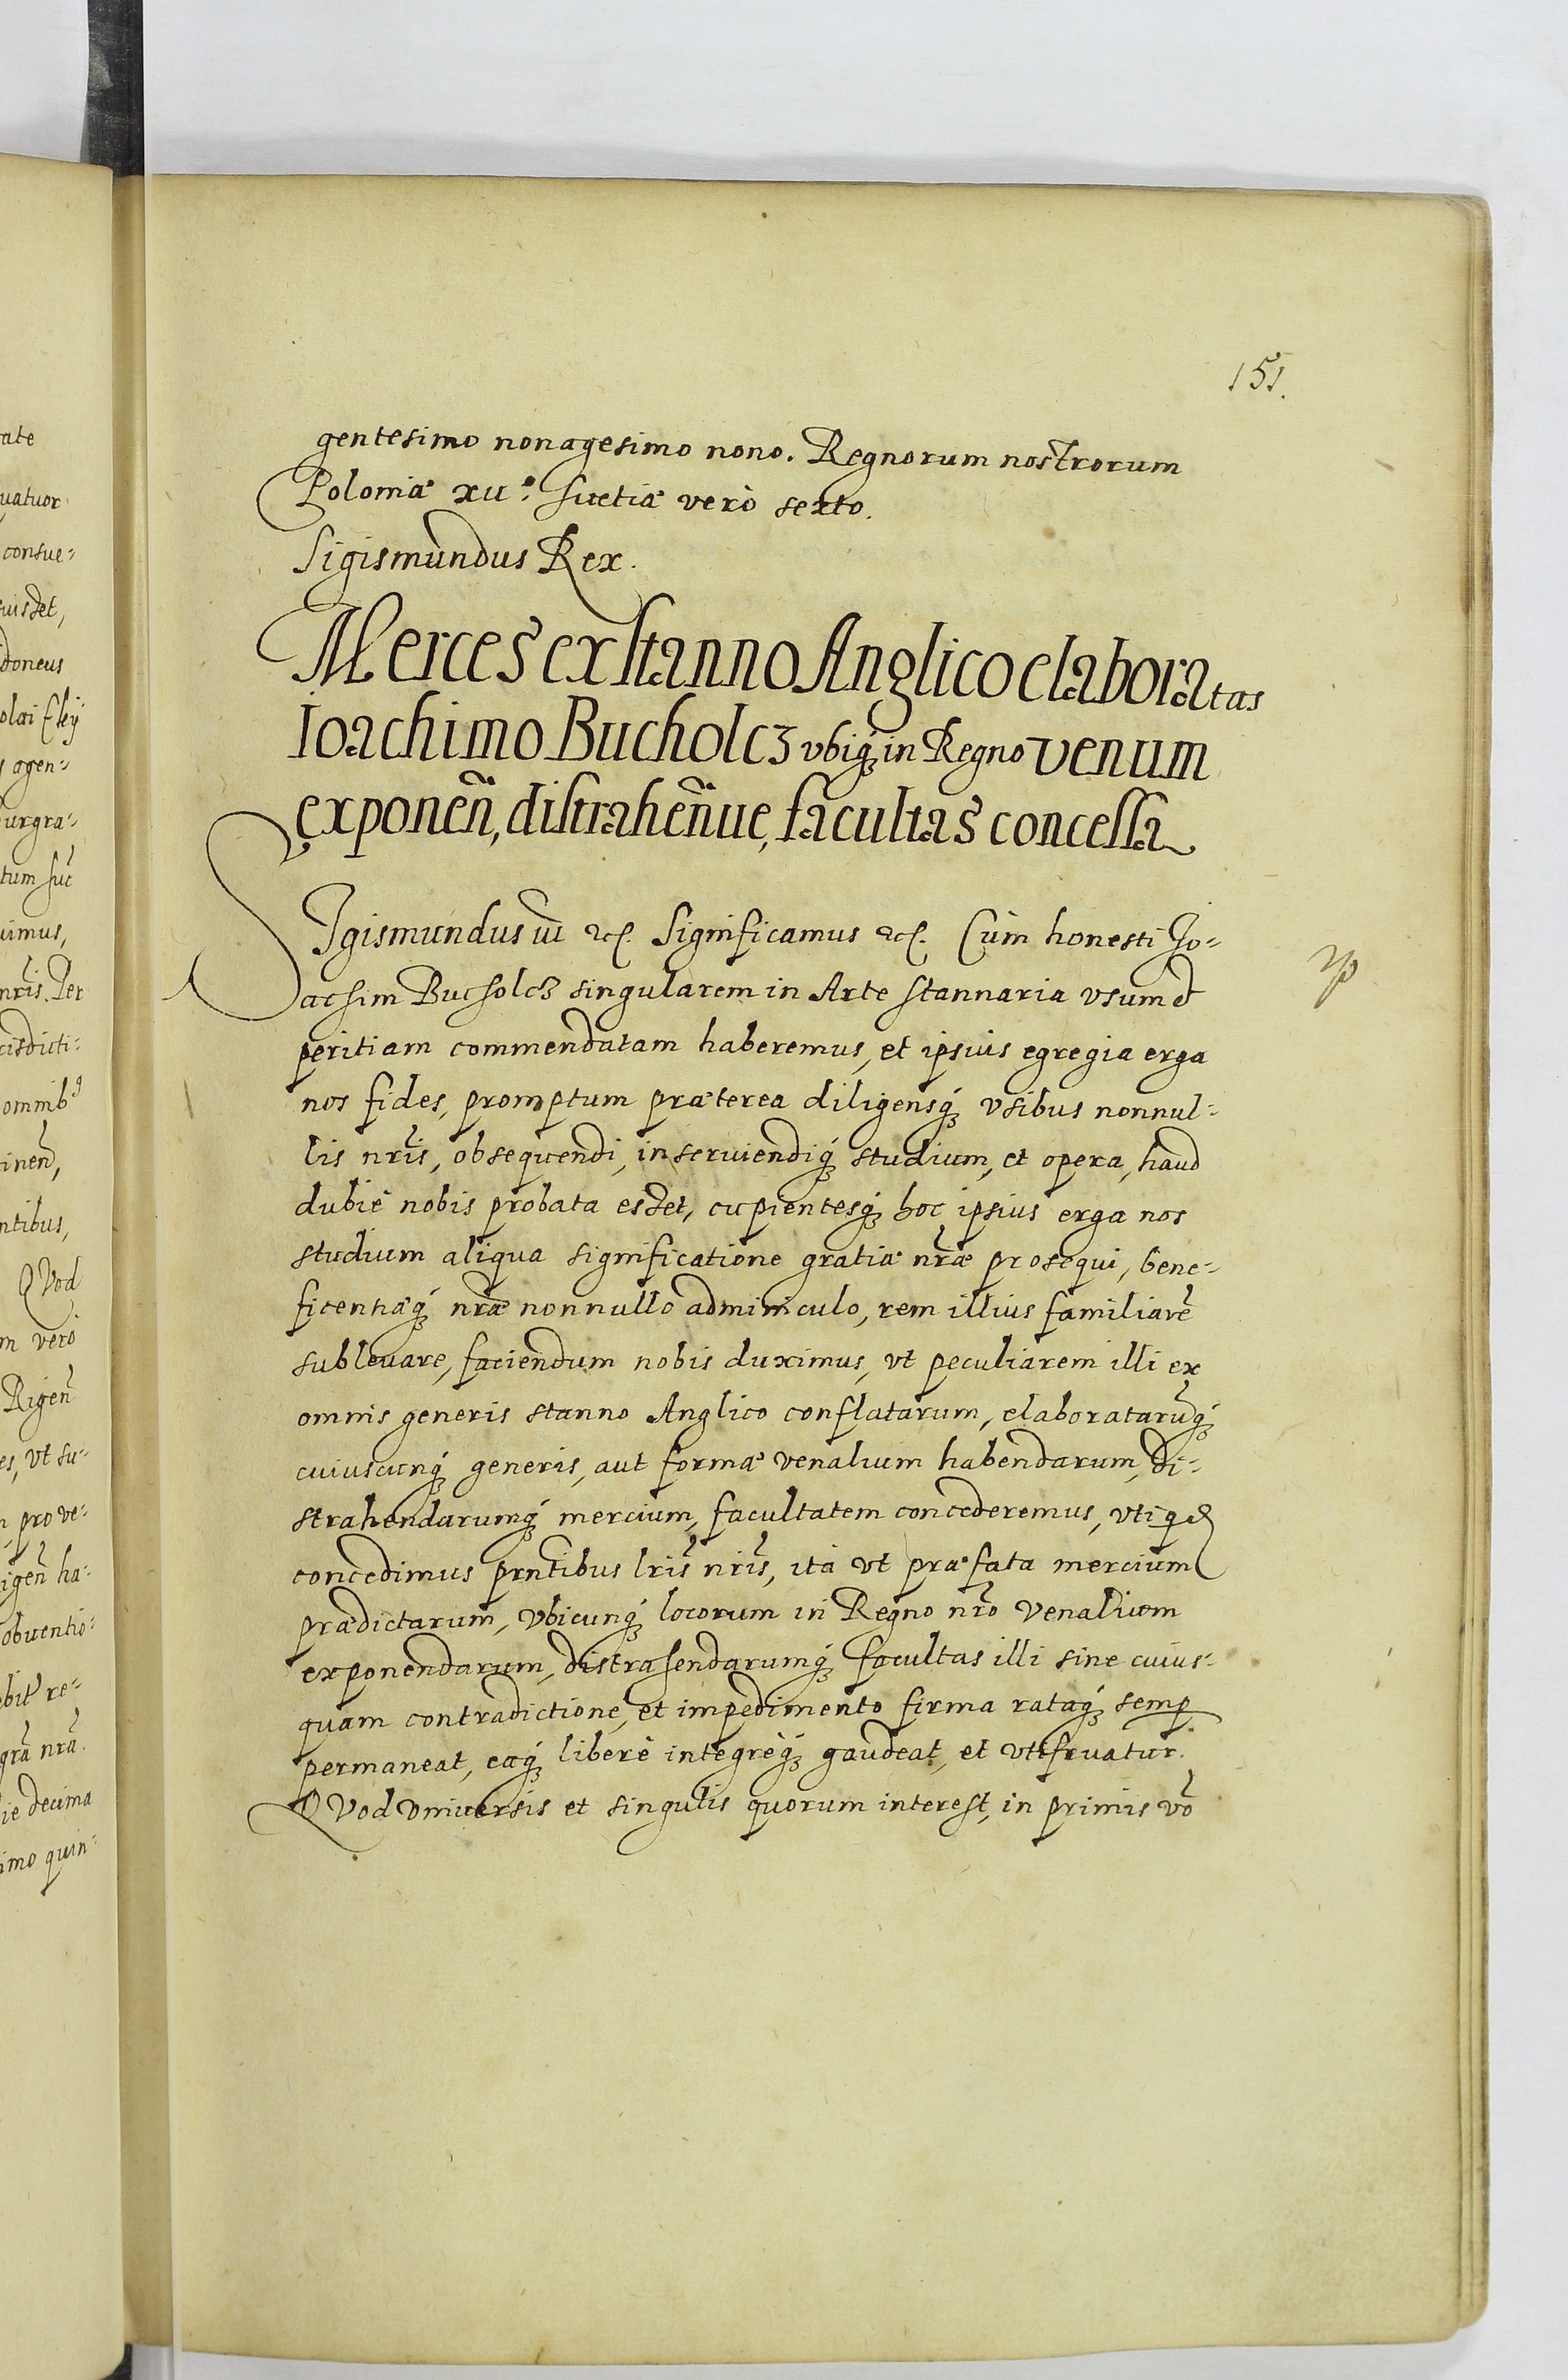 151.
gentesimo nonagesimo nono. Regnorum nostrorum
Poloniæ xuº. Suetiæ verò sexto.
Sigismundus Rex.
Merces ex stanno Anglico elaboratas
Ioachimo Bucholcz vbiq́ꝫ in Regno venum
exponen̄, distrahen̄ue, facultas concessa
SIgismundus iii ꝛc̨. Significamus ꝛc̨. Cùm honesti Jo-
achim Bucholcz singularem in Arte stannaria vsum et
peritiam commendatam haberemus, et ipsius egregia erga
nos fides, promptum præterea diligensq́ꝫ vsibus nonnul-
lis nr̄is, obsequendi, inseruiendiq́ꝫ studium, et opera, haud
dubiè nobis probata esset, cupientesq́ꝫ hoc ipsius erga nos
studium aliqua significatione gratiæ nr̄æ prosequi, bene-
ficentiæq́ꝫ nr̄æ nonnullo adminiculo, rem illius familiarē
subleuare, faciendum nobis duximus, vt peculiarem illi ex
omnis generis stanno Anglico conflatarum, elaboratarūq́ꝫ
cuiuscunq́ꝫ generis, aut formæ venalium habendarum, di-
strahendarumq́ꝫ mercium, facultatem concederemus, vti qd
concedimus prn̄tibus lr̄is nr̄is, ità vt præfata mercium
prædictarum, vbicunq́ꝫ locorum in Regno nr̄o venalium
exponendarum, distrahendarumq́ꝫ facultas illi sine cuius-
quam contradictione, et impedimento firma rataq́ꝫ semp
permaneat, eaq́ꝫ liberè integrèq́ꝫ gaudeat, et vtifruatur.
QVod vniuersis et singulis quorum interest, in primis vō